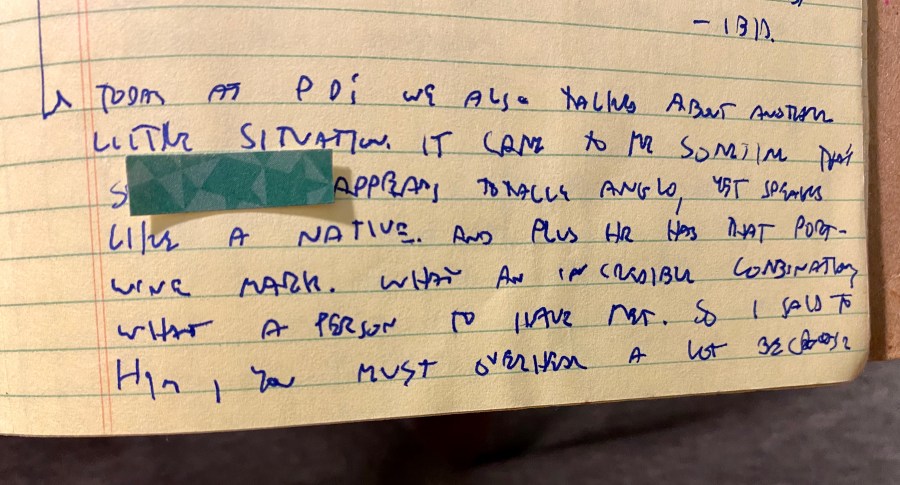 TODAY AT PDi WE ALSO TALKED ABOUT ANOTHER
LITTLE SITUATION. IT CAME TO ME SOMTIM THAT
S APPEARS TOTALLY ANGLO, YET SPEAKS
LIKE A NATIVE. AND PLUS HE HAS THAT PORT-
WINE MARK. WHAT AN INCREDIBLE COMBINATION
WHAT A PERSON TO HAVE MET. SO I SAID TO
HIM, YOU MUST OVERHEAR A LOT BECAUSE